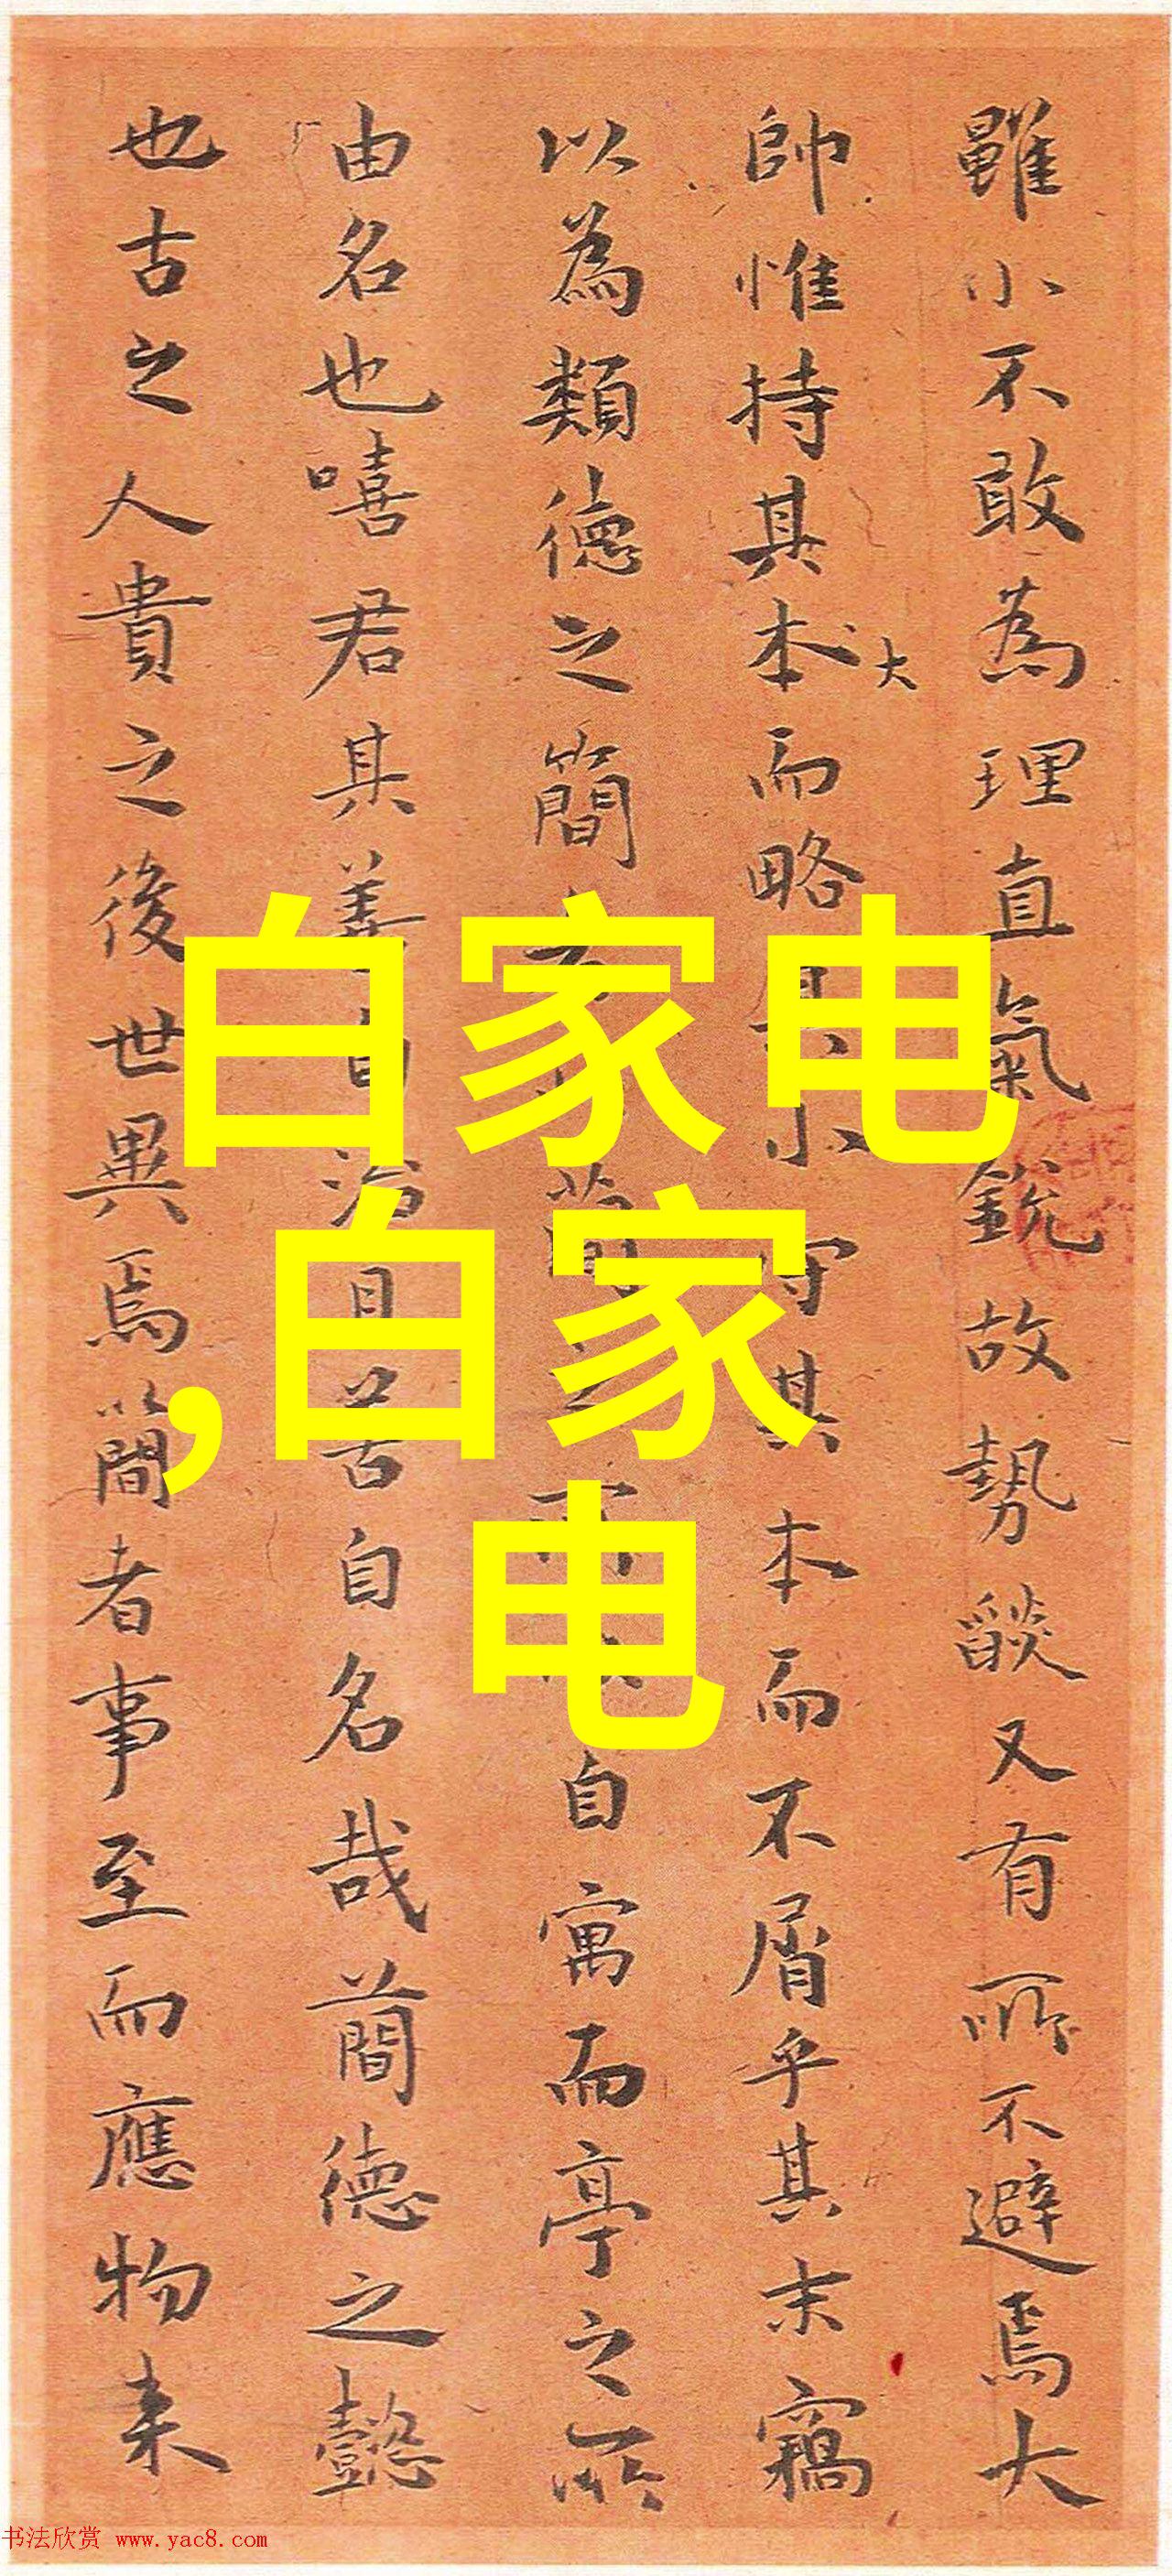 雖小不敢為理直氣銳故勢燄又有所不避焉大
帥惟持其本而略其小守其本而不屑乎其末竊
大
以為類德之簡自寓而亭之所
由名也嘻君其善自治且善自名哉蕳德之懿
也古之人貴之後世異焉簡者事至而應物来
白家电
,白家
电
书法欣赏 www.yac8.com